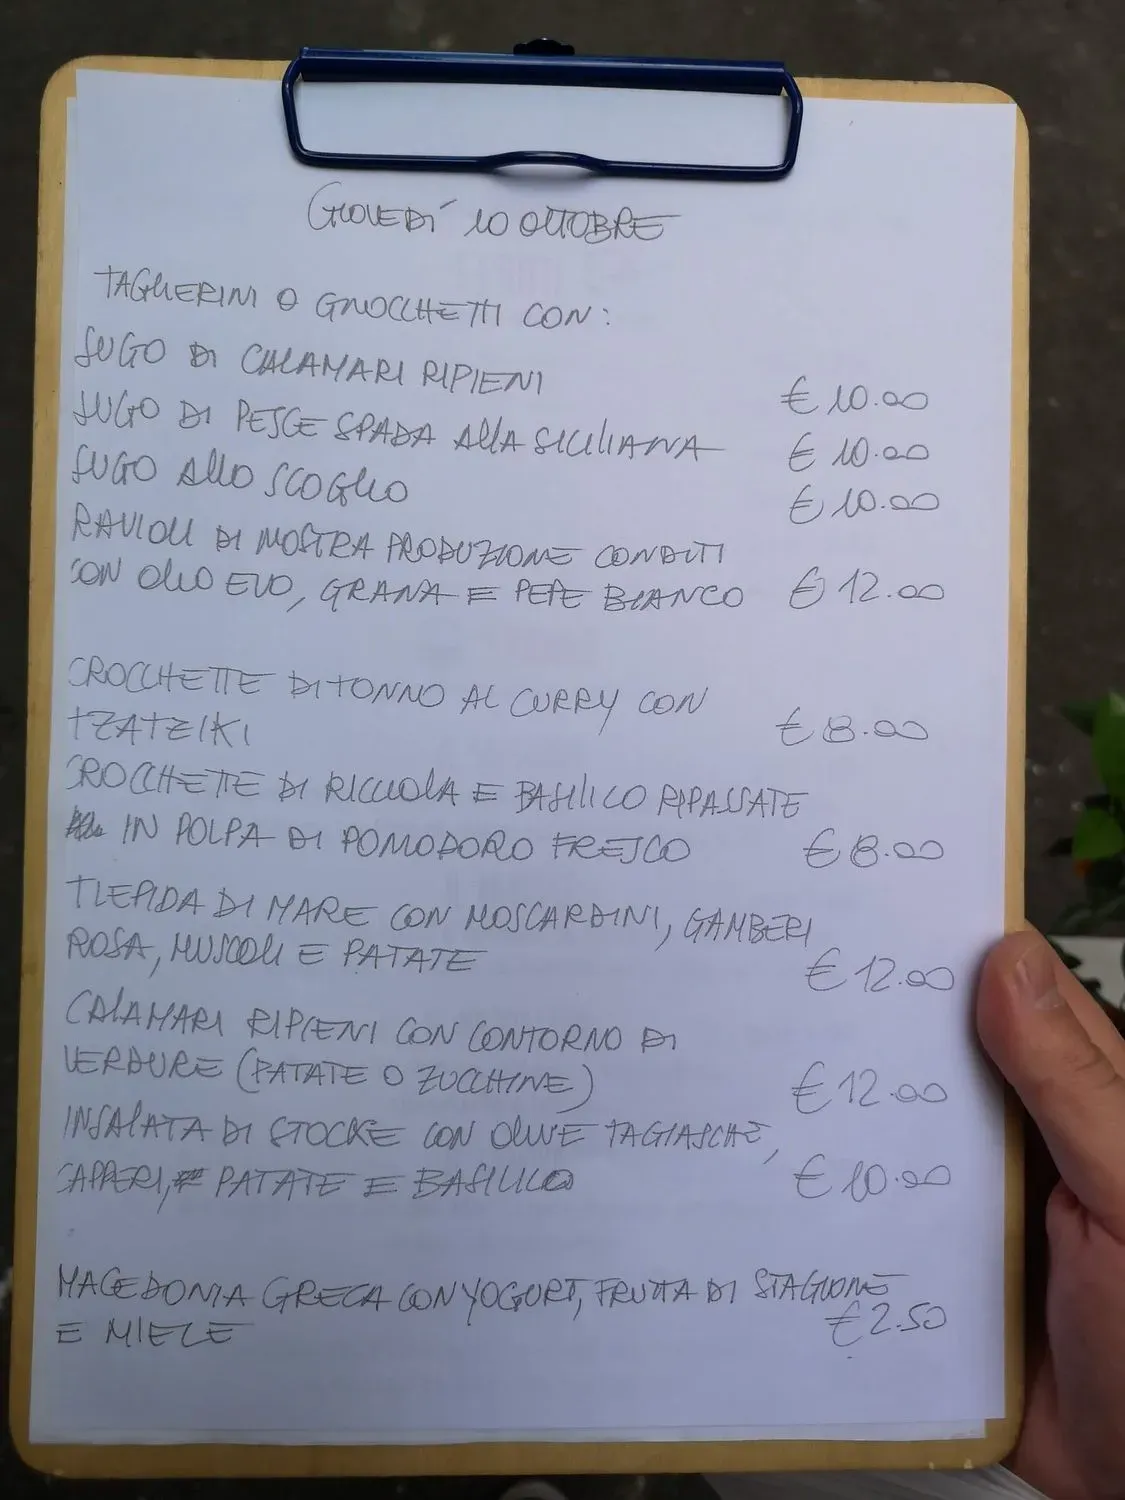 GIOVEDÍ 10 OTTOBRE
TAGLIERINI O GNOCCHETTI CON:
SUGO DI CALAMARI RIPIENI € 10.00
SUGO DI PESCE SPADA ALLA SICILIANA € 10.00
SUGO ALLO SCOGLIO € 10.00
RAVIOLI DI NOSTRA PRODUZIONE CONDITI
CON OLIO EVO, GRANA E PEPE BIANCO € 12.00
CROCCHETTE DI TONNO AL CURRY CON
TZATZIKI € 8.00
CROCCHETTE DI RICCIOLA E BASILICO RIPASSATE
IN POLPA DI POMODORO FRESCO € 8.00
TIEPIDA DI MARE CON MOSCARDINI, GAMBERI
ROSA, MUSCOLI E PATATE € 12.00
CALAMARI RIPIENI CON CONTORNO DI
VERDURE (PATATE O ZUCCHINE) € 12.00
INSALATA DI STOCKE CON OLIVE TAGIASCHE,
CAPPERI, PATATE E BASILICO € 10.00
MACEDONIA GRECA CON YOGURT, FRUTTA DI STAGIONE
E MIELE € 2.50